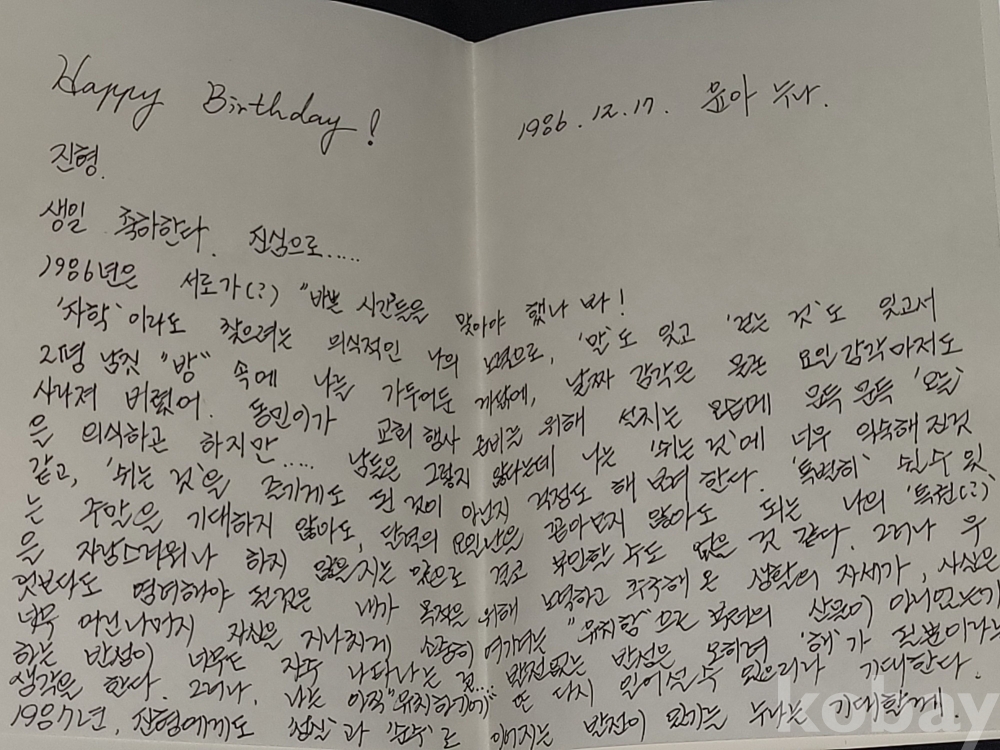 Happy Birthday!
1986. 12. 17. 윤아 누나.
진형.
생일 축하한다. 진심으로.....
1986년은 서로가(?) "바쁜 시간들을 맞아야 했나 봐!
'자학'이라도 찾으려는 의식적인 나의 노력으로, '말'도 잊고 '걷는 것'도 잊고서
2평 남짓 "방" 속에 나를 가두어둔 게 날짜 감각은 물론 요일감각마저도
사라져 버렸어. 동민이가 교회 행사 준비를 위해 설치는 모습에 문득 문득 '오늘'
을 의식하곤 하지만..... 남들은 그렇지 않다는데 나는 '쉬는 것'에 너무 익숙해 진것
같고, '쉬는 것'을 즐기게도 된 것이 아닌지 걱정도 해 한다. '특별히' 쉴 수 있
는 주말을 기대하지 않아도, 달력의 요일난은 꼽아보지 않아도 되는 나의 '특권(?)'
을 자랑스러워나 하지 않을 지는 앞으로 결코 부인할 수도 없을 것 같다. 그러나 무
엇보다도 염려해야 될것은 내가 목적을 위해 노력하고 추구해 온 생활의 자세가, 사실은
너무 자신을 지나치게 소중히 여기려는 "유치함"으로 산물이 아니었는가
하는 반성이 너무도 자주 나타나는 것... 반성은 오히려 '해'가 된 뿐이라는
생각을 한다. 그러나, 나는 아직 또 다시 일어설 수 있으리라 기대한다.
1987년, 진형에게도 과 로 이어지는 발전이 누나는 기대할께.
kobay